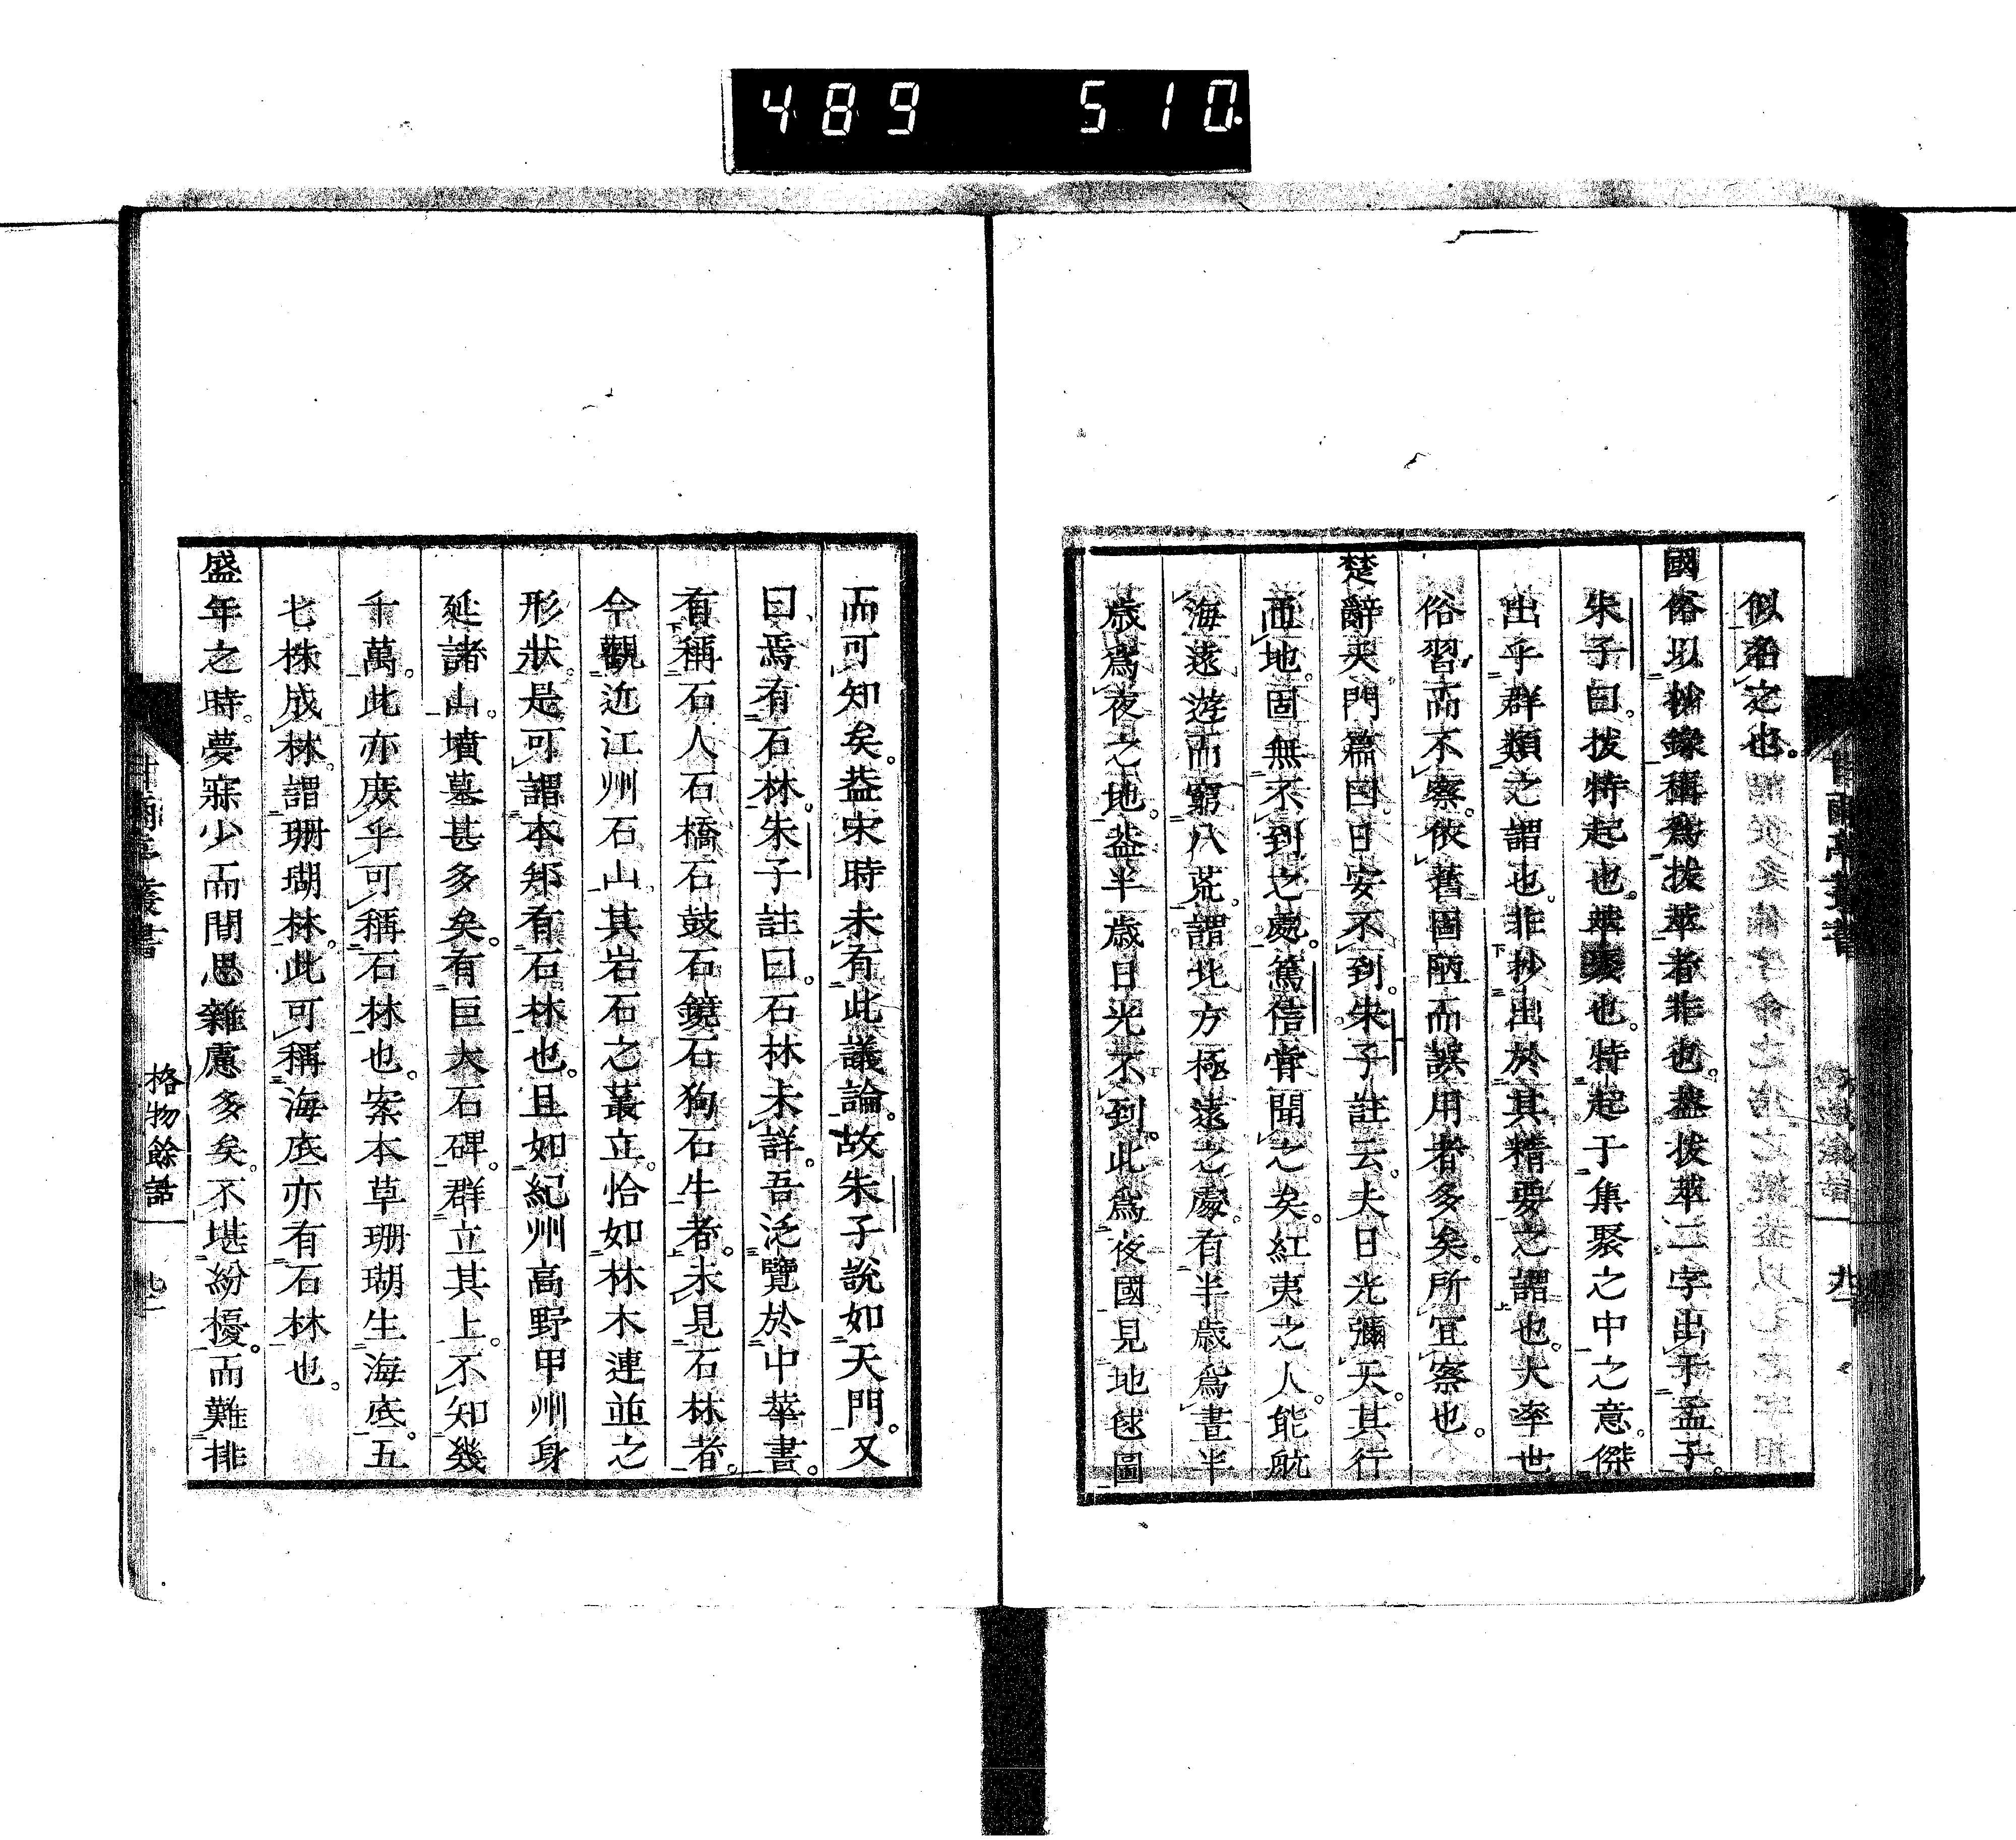 489 510
似名之也。
國俗以抄錄稱爲拔萃者非也。蓋拔萃二字出于孟子。
朱子曰。拔特起也。萃聚也。特起于集聚之中之意。傑
出乎群類之謂也。非抄出於其精要之謂也。大率世
俗習而不察。依舊固陋而誤用者多矣。所宜察也。
楚辭天門篇曰。日安不到。朱子註云。夫日光彌天。其行
匝地。固無不到之處。篤信嘗聞之矣。紅夷之人。能航
海遠遊而窮八荒。謂北方極遠之處。有半歲爲晝半
歲爲夜之地。蓋半歲日光不到。此爲夜國見地毬圖
甘雨亭叢書
九
而可知矣。蓋宋時未有此議論。故朱子說如天門。又
曰焉有石林。朱子註曰。石林未詳。吾泛覽於中華書。
有稱石人石橋石鼓石鏡石狗石牛者。未見石林者。
今觀近江州石山。其岩石之叢立。恰如林木連並之
形狀。是可謂本邦有石林也。且如紀州高野甲州身
延諸山。墳墓甚多矣。有巨大石碑。群立其上。不知幾
千萬。此亦庶乎可稱石林也。案本草珊瑚生海底。五
七株成林。謂珊瑚林。此可稱海底亦有石林也。
盛年之時。夢寐少而閒思雜慮多矣。不堪紛擾。而難排
叢書
格物餘話